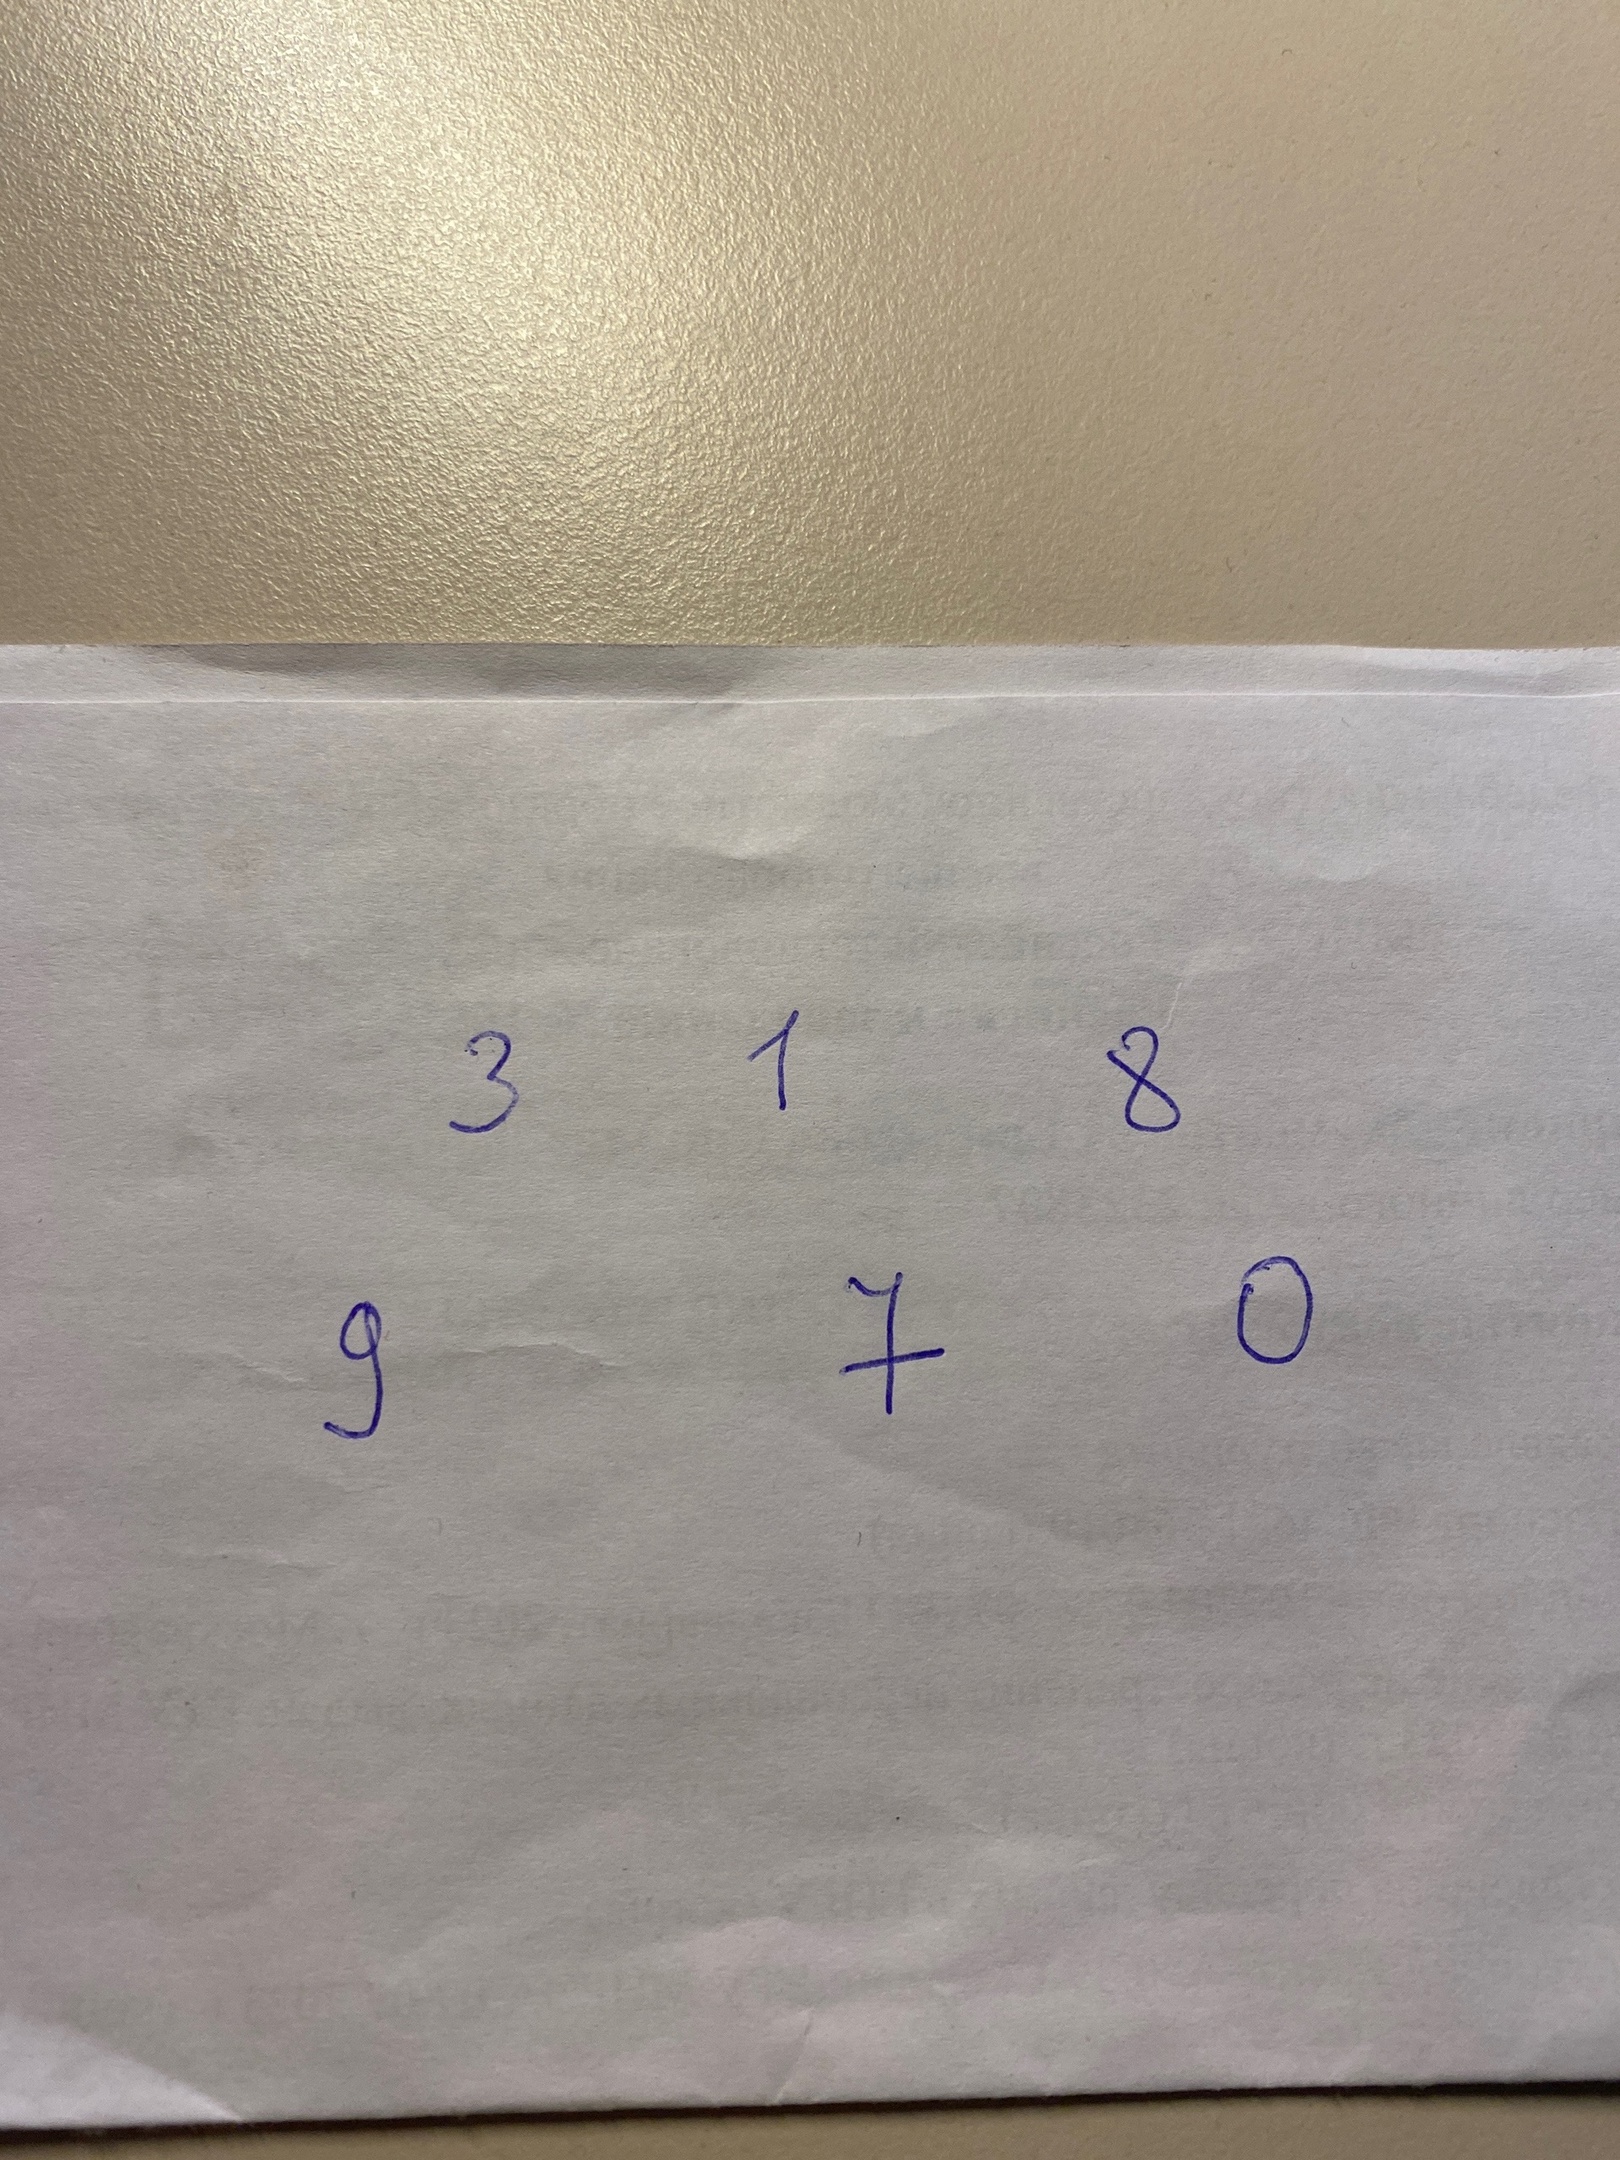 3 1 8
9 7 0